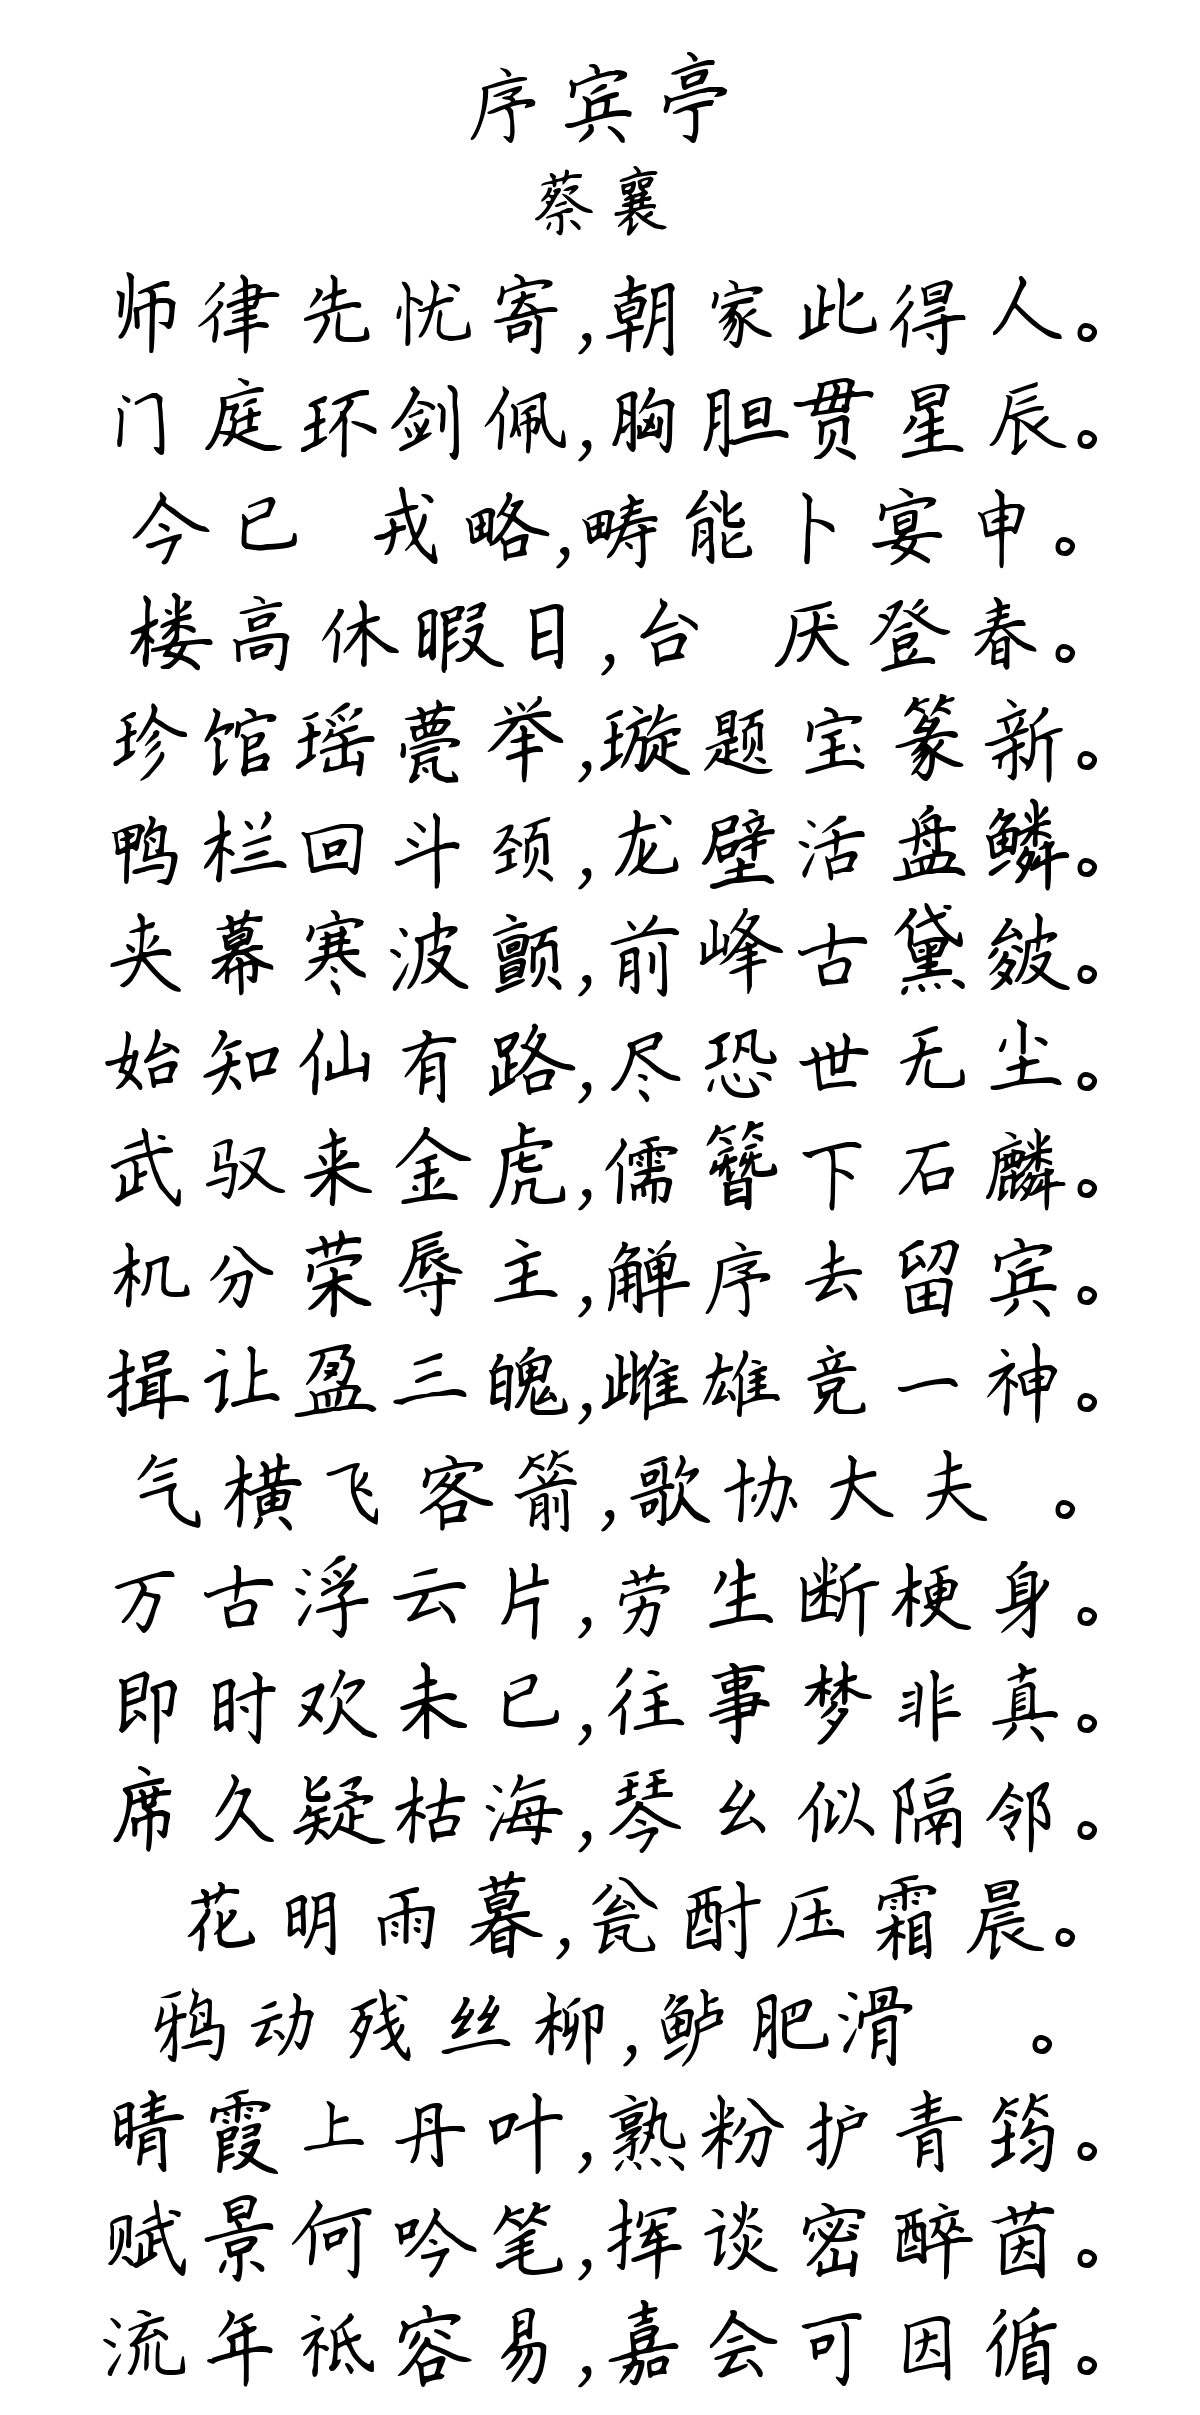 序宾亭
蔡襄
师律先忧寄,朝家此得人。
门庭环剑佩,胸胆贯星辰。
今已 戎略,畴能卜宴申。
楼高休暇日,台 厌登春。
珍馆瑶甍举,璇题宝篆新。
鸭栏回斗颈,龙壁活盘鳞。
夹幕寒波颤,前峰古黛皴。
始知仙有路,尽恐世无尘。
武驭来金虎,儒簪下石麟。
机分荣辱主,觯序去留宾。
揖让盈三魄,雌雄竞一神。
气横飞客箭,歌协大夫 。
万古浮云片,劳生断梗身。
即时欢未已,往事梦非真。
席久疑枯海,琴幺似隔邻。
花明雨暮,瓮酎压霜晨。
鸦动残丝柳,鲈肥滑 。
晴霞上丹叶,熟粉护青筠。
赋景何吟笔,挥谈密醉茵。
流年祗容易,嘉会可因循。